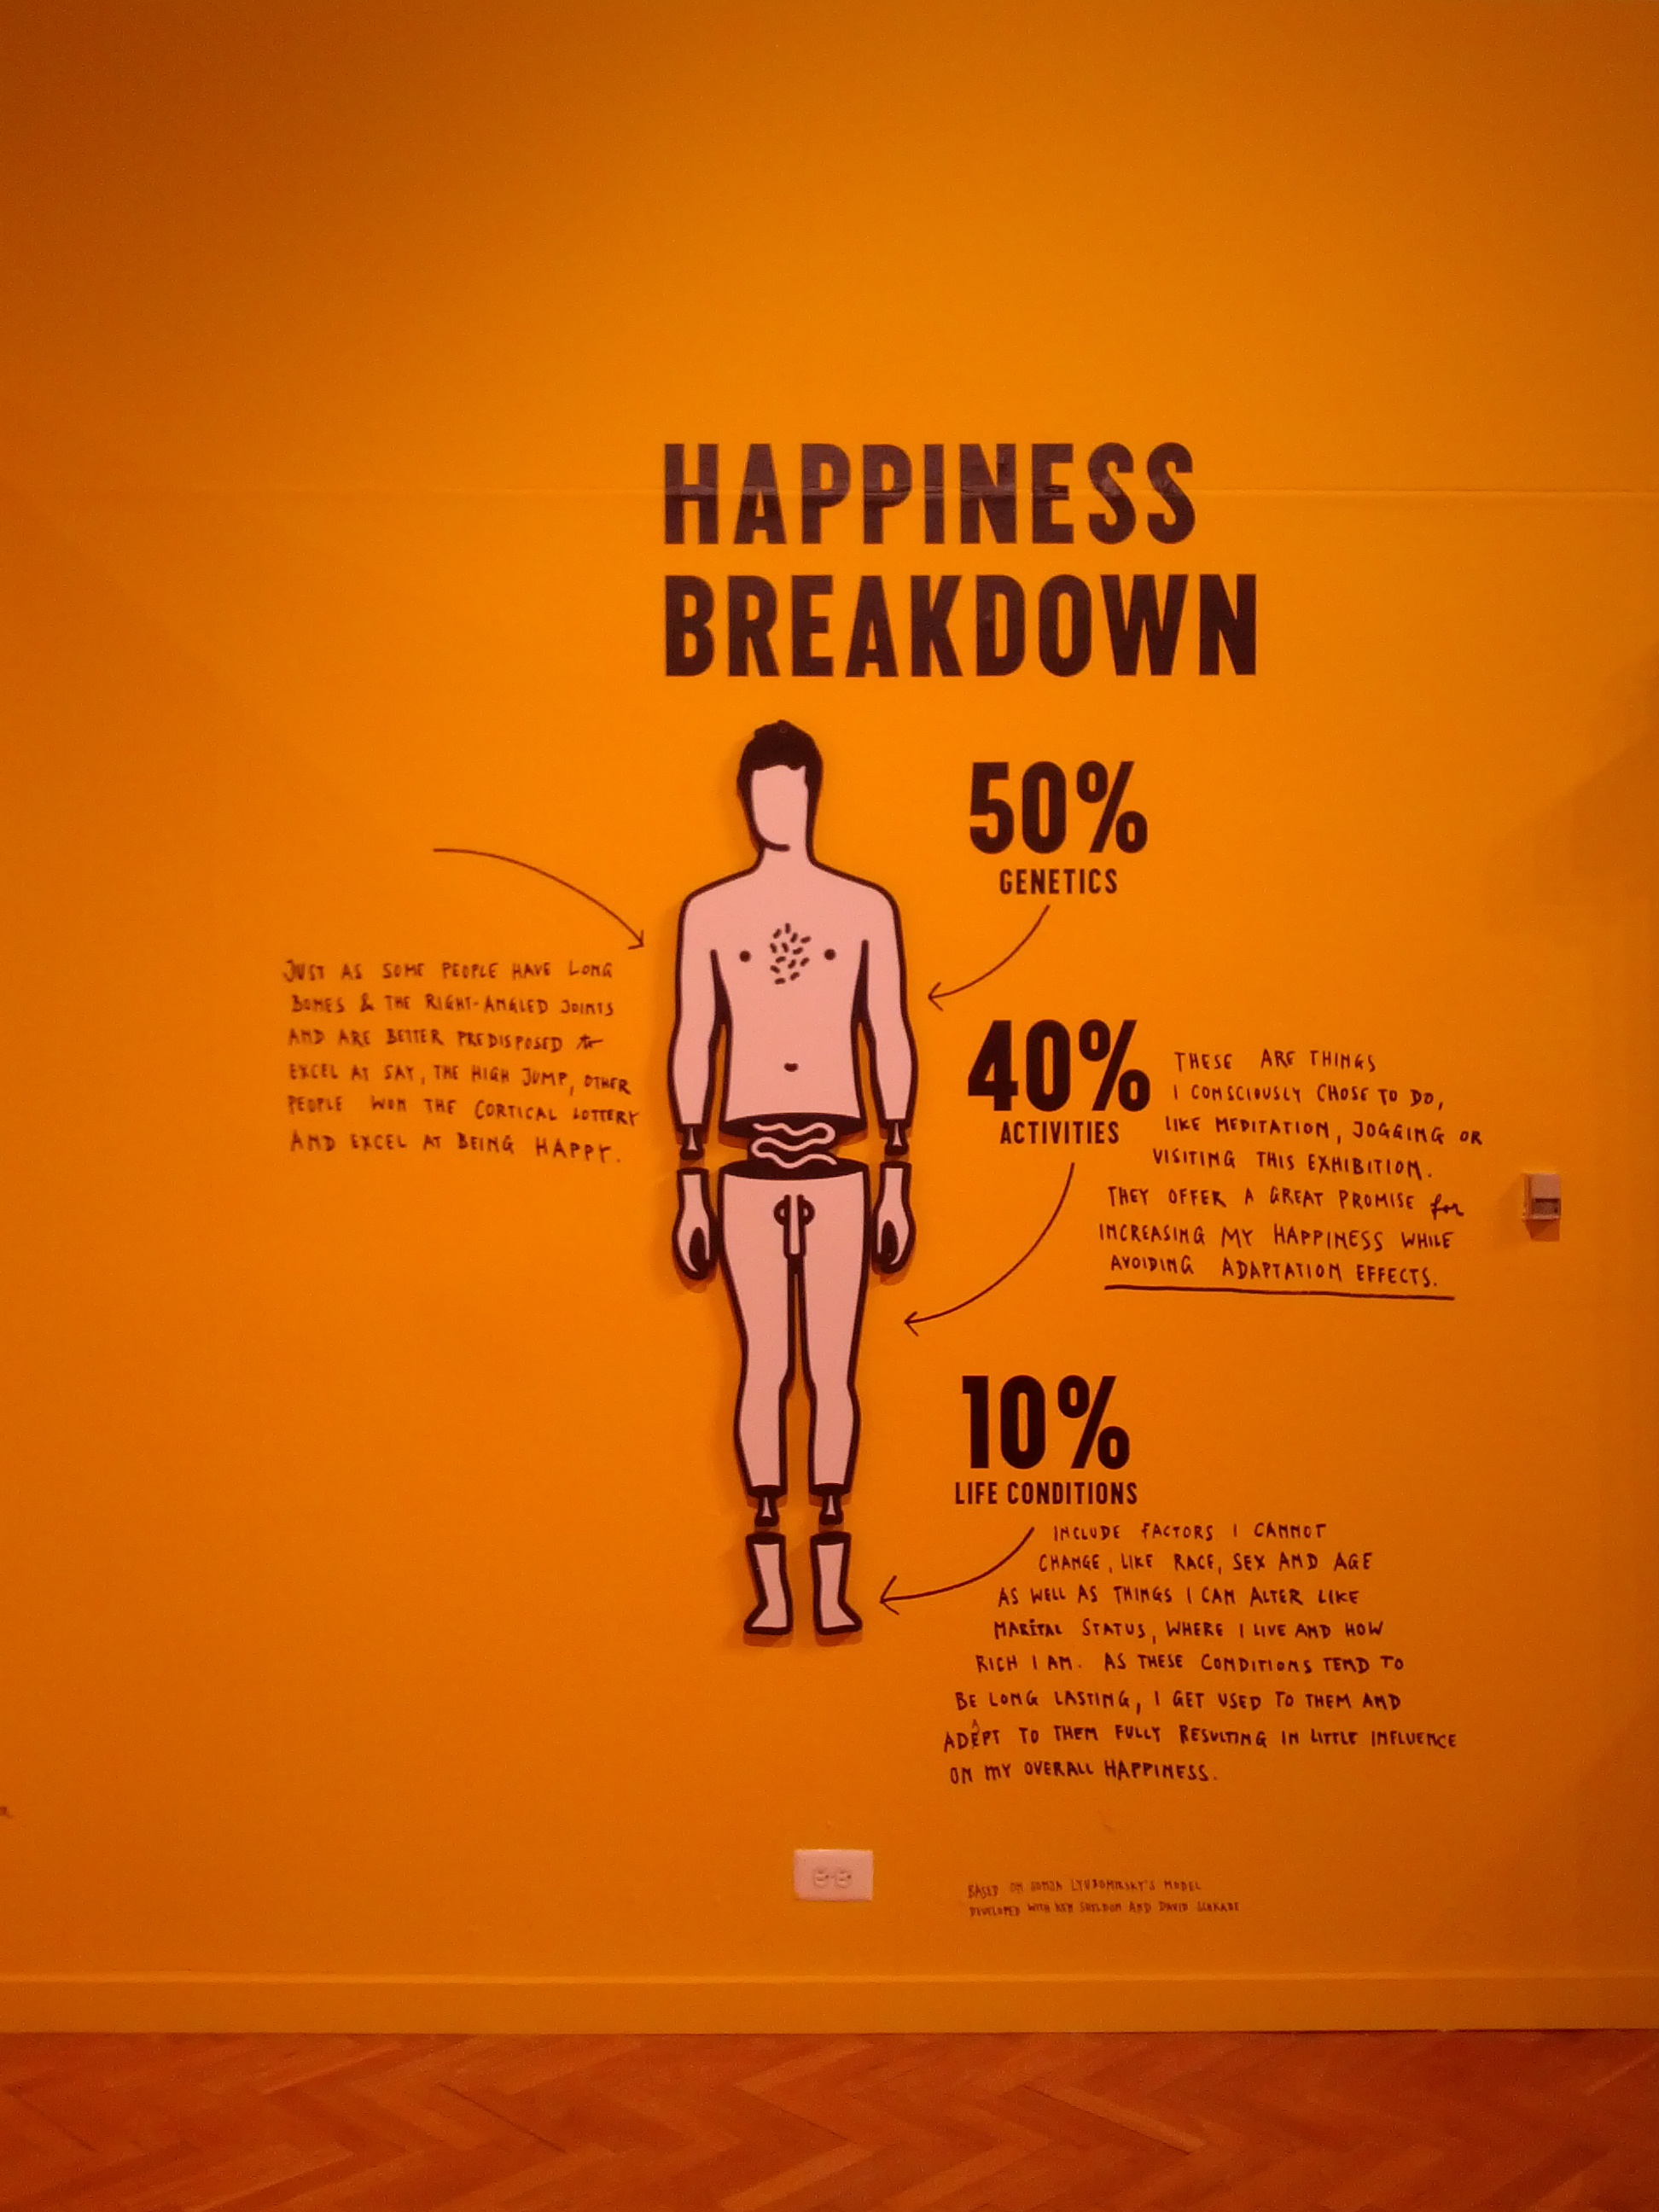 HAPPINESS
BREAKDOWN
50%
GENETICS
JUST AS SOME PEOPLE HAVE LONG
BONES & THE RIGHT-ANGLED JOINTS
AND ARE BETTER PREDISPOSED to
EXCEL AT SAY, THE HIGH JUMP, OTHER
PEOPLE WON THE CORTICAL LOTTERY
AND EXCEL AT BEING HAPPY.
40%
ACTIVITIES
THESE ARE THINGS
I CONSCIOUSLY CHOSE TO DO,
LIKE MEDITATION, JOGGING OR
VISITING THIS EXHIBITION.
THEY OFFER A GREAT PROMISE for
INCREASING MY HAPPINESS WHILE
AVOIDING ADAPTATION EFFECTS.
10%
LIFE CONDITIONS
INCLUDE FACTORS I CANNOT
CHANGE, LIKE RACE, SEX AND AGE
AS WELL AS THINGS I CAN ALTER LIKE
MARITAL STATUS, WHERE I LIVE AND HOW
RICH I AM. AS THESE CONDITIONS TEND TO
BE LONG LASTING, I GET USED TO THEM AND
ADAPT TO THEM FULLY RESULTING IN LITTLE INFLUENCE
ON MY OVERALL HAPPINESS.
BASED ON SONJA LYUBOMIRSKY'S MODEL
DEVELOPED WITH KEN SHELDON AND DAVID SCHKADE